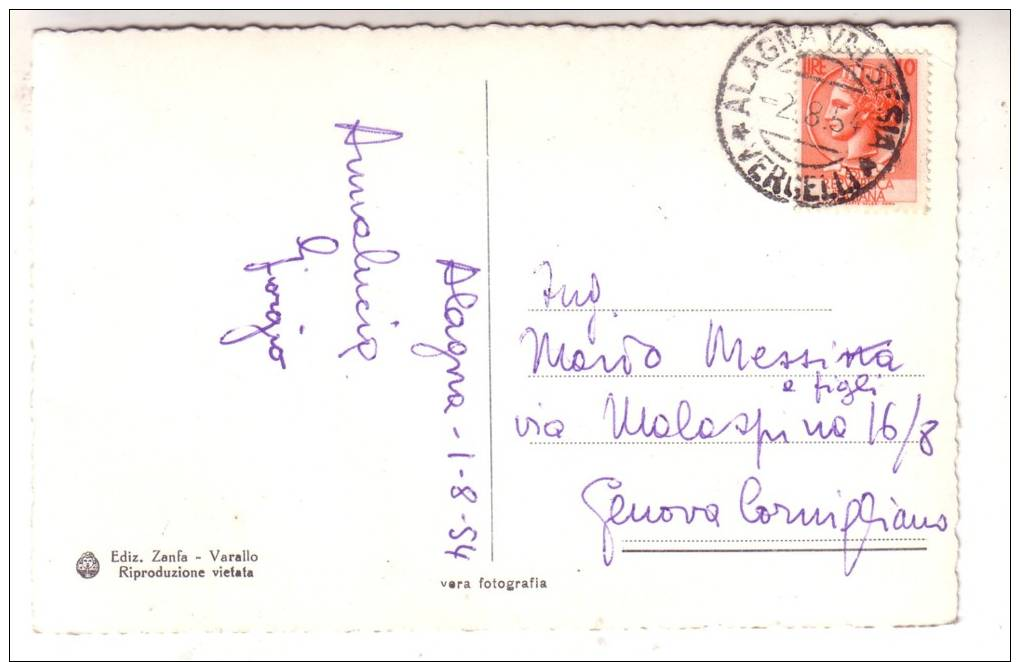 Alagna - 1-8-54
Annalucia
Giorgio
Ediz. Zanfa - Varallo
Riproduzione vietata
vera fotografia
ALAGNA VALSESIA
* VERCELLI *
2.8.54
LIRE 10
REPUBBLICA
ITALIANA
Ing.
Mario Messina
e figli
via Malaspina 16/8
Genova Cornigliano